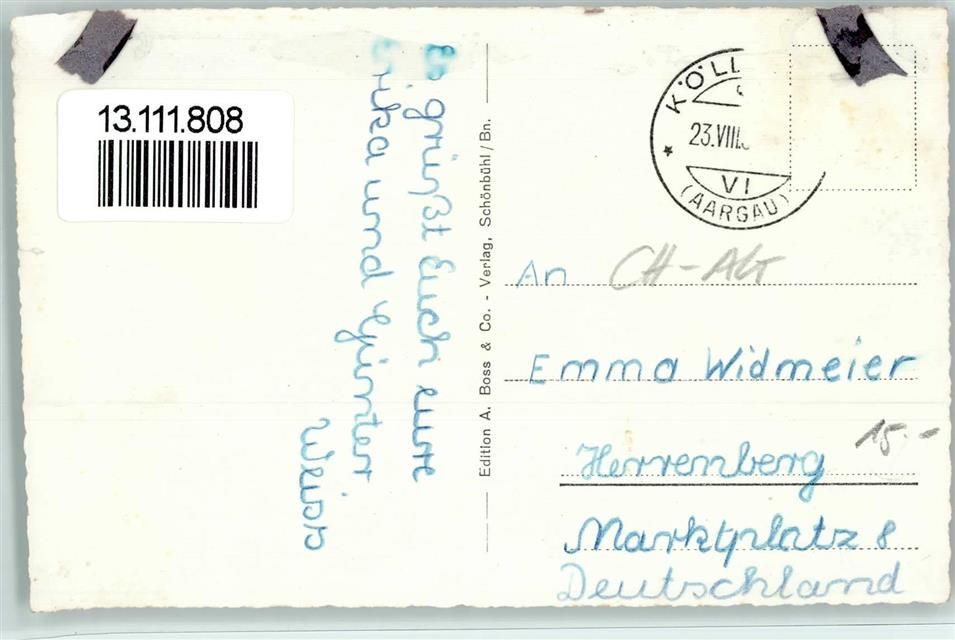 13.111.808
Es grüßt Euch eure
Erika und Günter
Weiss
Edition A. Boss & Co. - Verlag, Schönbühl/Bn.
KÖLL
23.VIII.
VI
(AARGAU)
CH-Alt
An
Emma Widmeier
15.-
Herremberg
Marktplatz 8
Deutschland